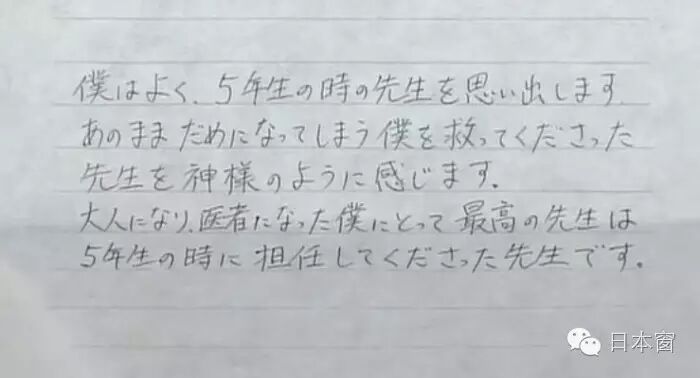 僕はよく、5年生の時の先生を思い出します。
あのままだめになってしまう僕を救ってくださった
先生を神様のように感じます。
大人になり、医者になった僕にとって最高の先生は
5年生の時に担任してくださった先生です。
日本窗